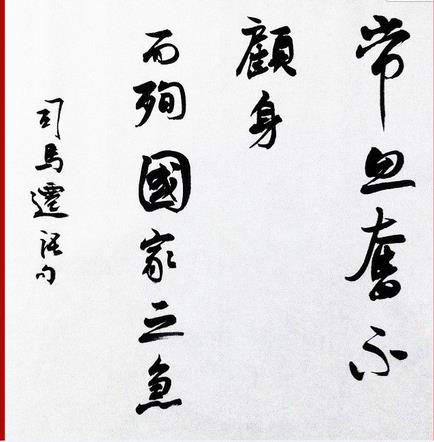 常思奮不
顧身
而殉國家之急
司馬遷語句